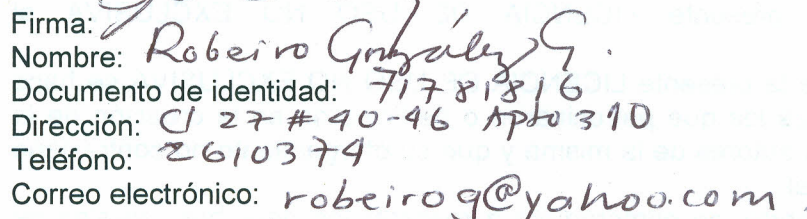 Firma:
Nombre: Robeiro González G.
Documento de identidad: 71781816
Dirección: Cl 27 # 40-46 Apto 310
Teléfono: 2610374
Correo electrónico: robeirog@yahoo.com